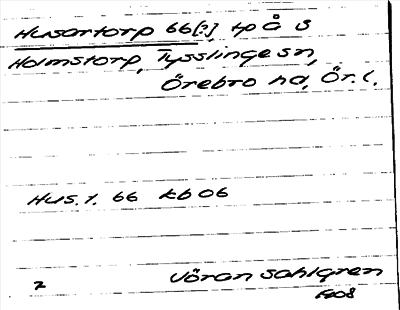 Husartorp 66[:], tp å S
Holmstorp, Tysslinge sn,
Örebro hd, Ör. l.
Hus. 1. 66 kb 06
2 Jöran Sahlgren